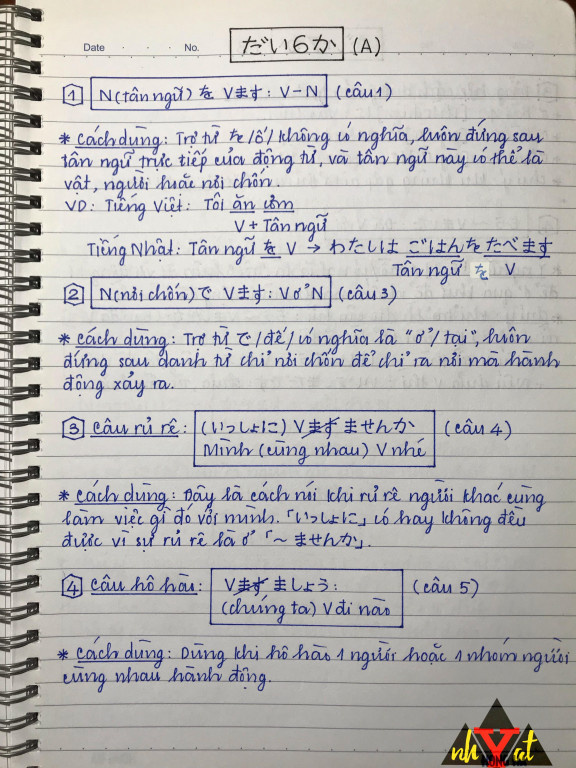 Date . . . No. だい6か (A)
1 N(tân ngữ) を Vます: V-N (câu 1)
* Cách dùng: Trợ từ を/ố/ không có nghĩa, luôn đứng sau
tân ngữ trực tiếp của động từ, và tân ngữ này có thể là
vật, người hoặc nơi chốn.
VD: Tiếng Việt: Tôi ăn cơm
V + Tân ngữ
Tiếng Nhật: Tân ngữ を V → わたしは ごはんをたべます
Tân ngữ を V
2 N(nơi chốn) で Vます: V ở N (câu 3)
* Cách dùng: Trợ từ で/đế/ có nghĩa là "ở/tại", luôn
đứng sau danh từ chỉ nơi chốn để chỉ ra nơi mà hành
động xảy ra.
3 Câu rủ rê: (いっしょに) Vます ませんか (câu 4)
Mình (cùng nhau) V nhé
* Cách dùng: Đây là cách nói khi rủ rê người khác cùng
làm việc gì đó với mình. 「いっしょに」 có hay không đều
được vì sự rủ rê là ở 「~ませんか」.
4 Câu hô hào: Vます ましょう: (câu 5)
(chúng ta) V đi nào
* Cách dùng: Dùng khi hô hào 1 người hoặc 1 nhóm người
cùng nhau hành động.
nhVat